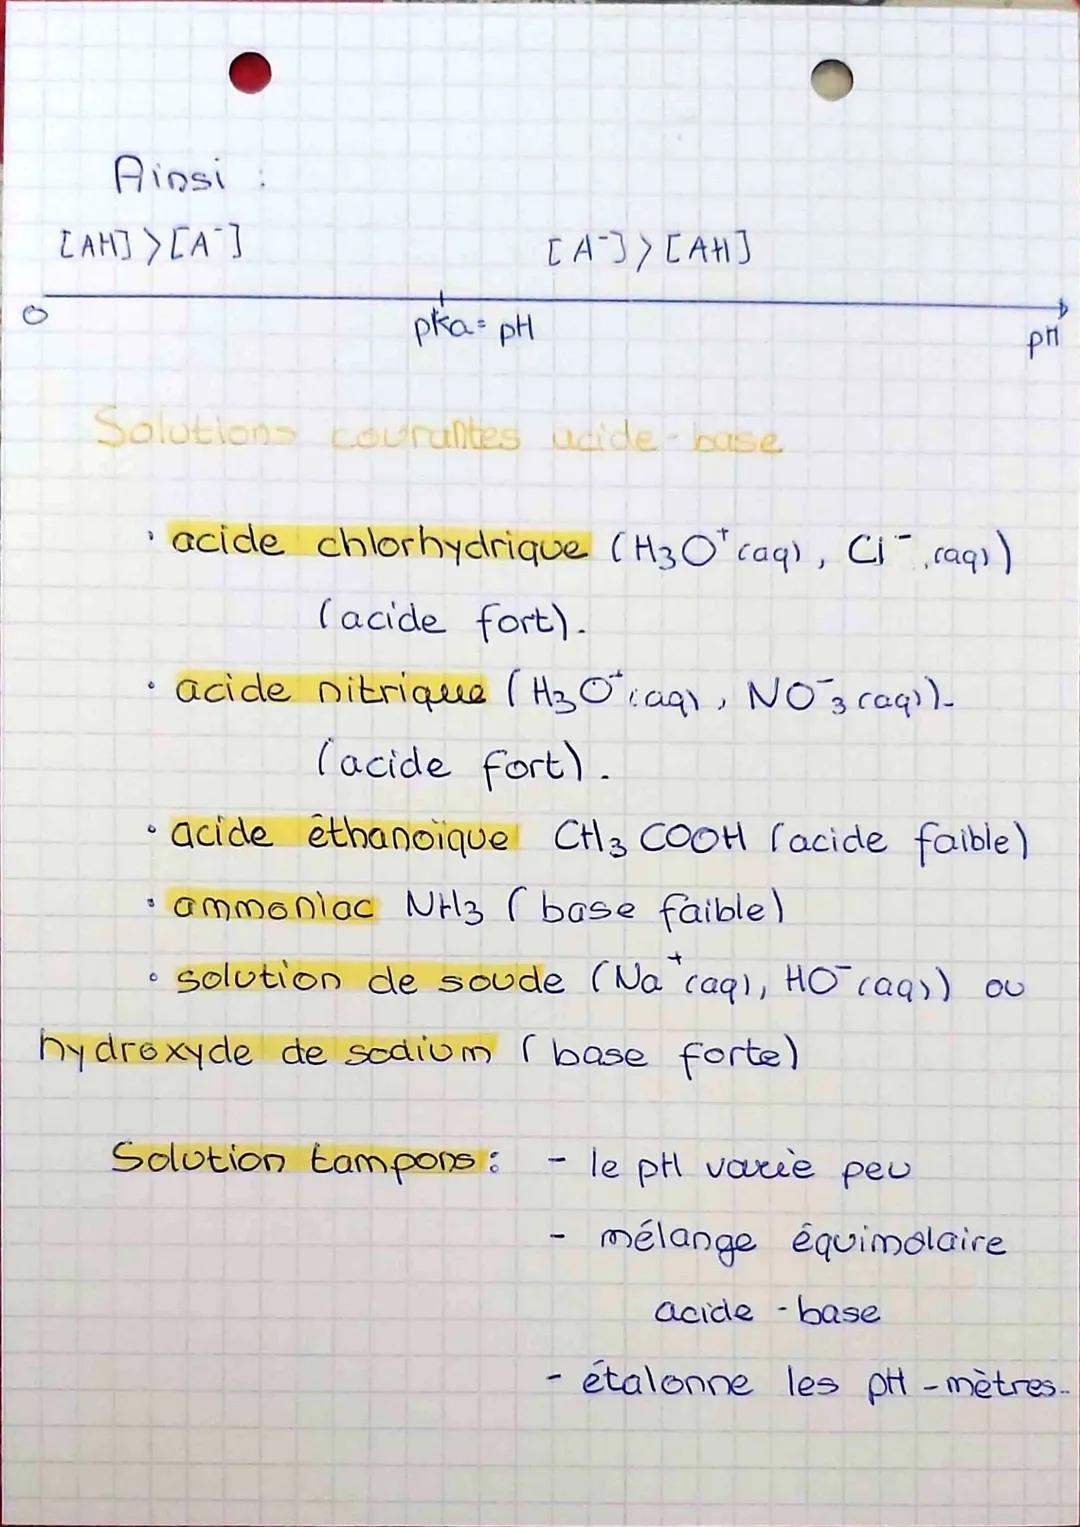 Ainsi :
[AH] > [A⁻] [A⁻] > [AH]
0 pKa = pH pH
Solutions courantes acide-base
· acide chlorhydrique (H₃O⁺(aq), Cl⁻,(aq))
(acide fort).
· acide nitrique (H₃O⁺(aq), NO⁻₃(aq)).
(acide fort).
· acide éthanoïque CH₃COOH (acide faible)
· ammoniac NH₃ (base faible)
· solution de soude (Na⁺(aq), HO⁻(aq)) ou
hydroxyde de sodium (base forte)
Solution tampons : - le pH varie peu
- mélange équimolaire
acide - base
- étalonne les pH-mètres.